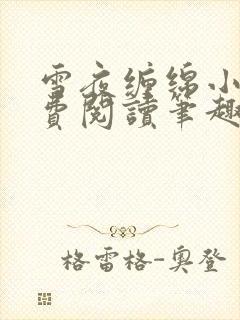 雪夜缠绵小
费阅读笔趣
格雷格-奥登